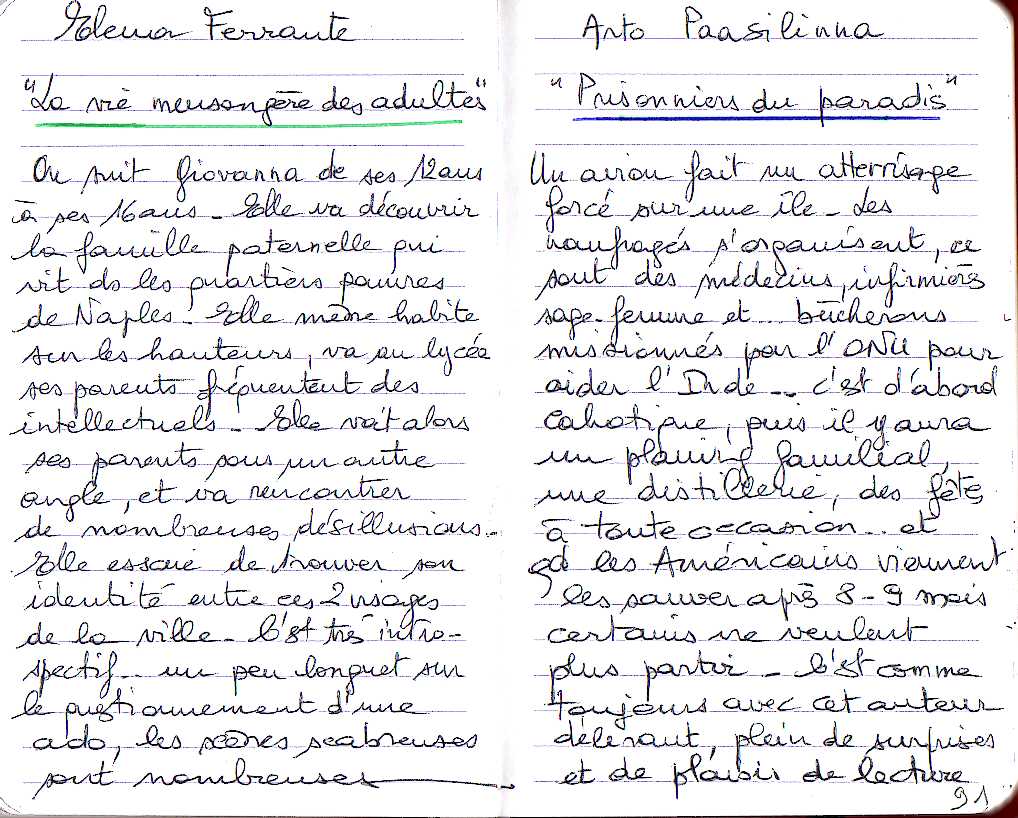 Elena Ferrante
"La vie mensongère des adultes"
On suit Giovanna de ses 12 ans
à ses 16 ans - Elle va découvrir
la famille paternelle qui
vit ds les quartiers pauvres
de Naples. Elle même habite
sur les hauteurs, va au lycée
ses parents fréquentent des
intellectuels - Elle voit alors
ses parents sous un autre
angle, et va rencontrer
de nombreuses désillusions..
Elle essaie de trouver son
identité entre ces 2 visages
de la ville - C'est très intro-
spectif.. un peu longuet sur
le questionnement d'une
ado, les scènes scabreuses
sont nombreuses
Arto Paasilinna
"Prisonniers du paradis"
Un avion fait un atterrisage
forcé sur une île - Les
naufragés s'organisent, ce
sont des médecins, infirmières
sage-femme et.. bûcherons
missionnés par l'ONU pour
aider l'Inde... c'est d'abord
cahotique, puis il y aura
un planing familial,
une distillerie, des fêtes
à toute occasion.. et
qd les Américains viennent
les sauver après 8-9 mois
certains ne veulent
plus partir - C'est comme
toujours avec cet auteur
délirant, plein de surprises
et de plaisir de lecture
91